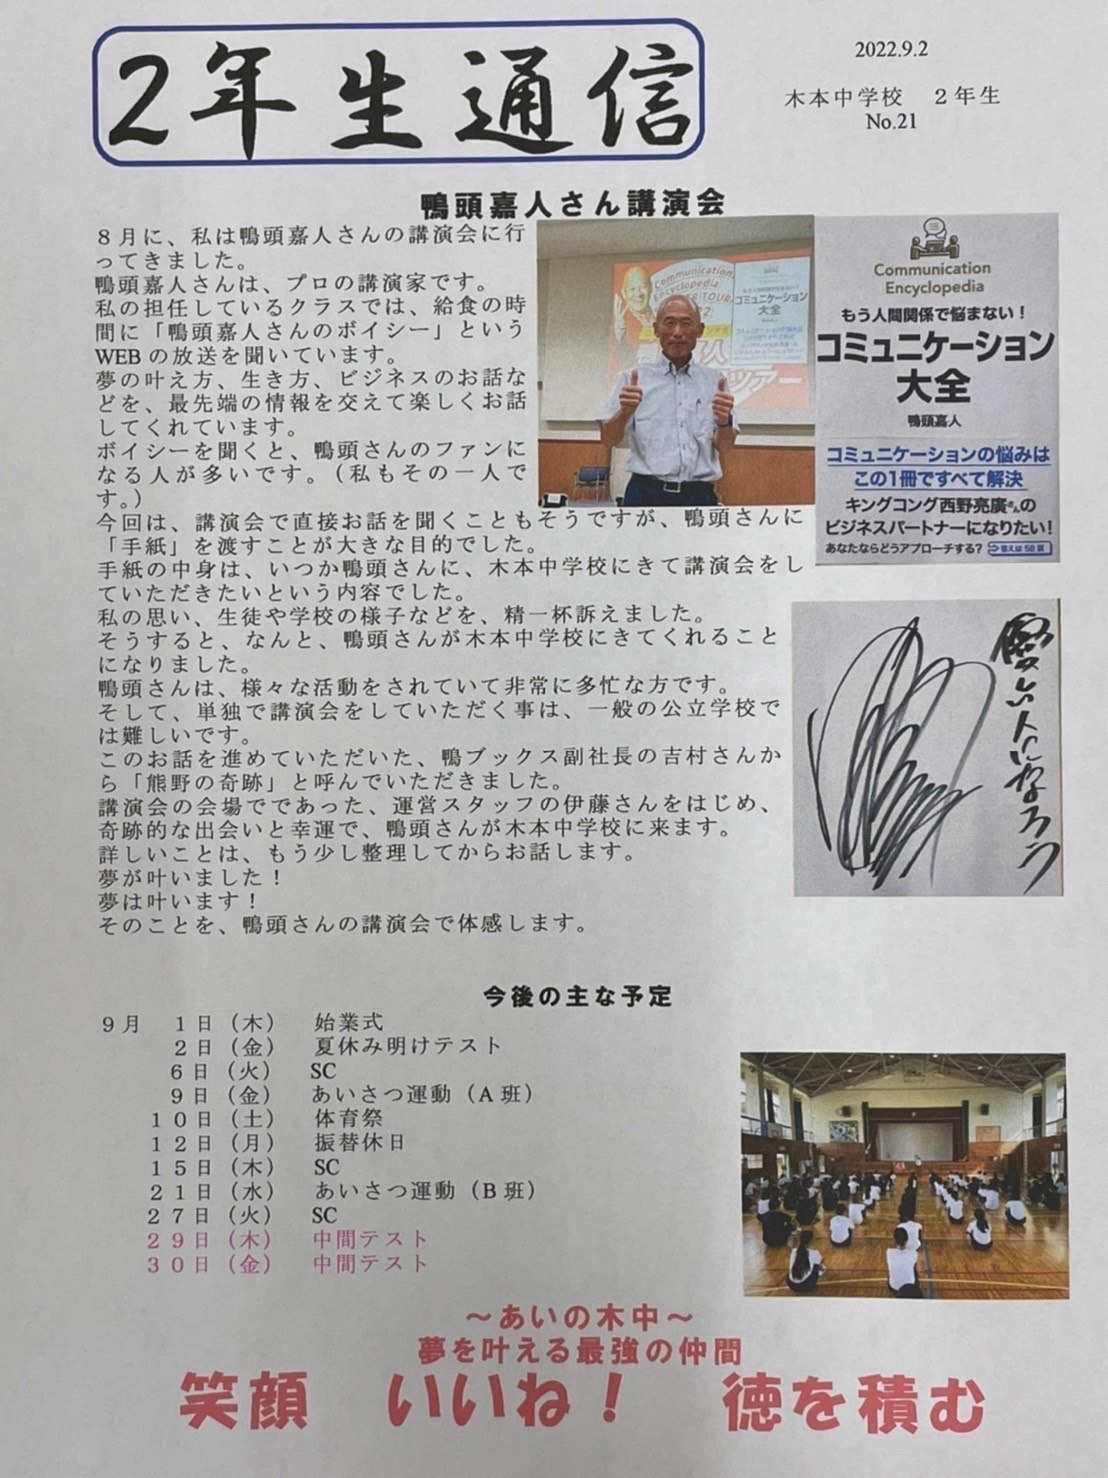 2年生通信
2022.9.2
木本中学校　２年生
No.21
鴨頭嘉人さん講演会
８月に、私は鴨頭嘉人さんの講演会に行
ってきました。
鴨頭嘉人さんは、プロの講演家です。
私の担任しているクラスでは、給食の時
間に「鴨頭嘉人さんのボイシー」という
WEBの放送を聞いています。
夢の叶え方、生き方、ビジネスのお話な
どを、最先端の情報を交えて楽しくお話
してくれています。
ボイシーを聞くと、鴨頭さんのファンに
なる人が多いです。（私もその一人で
す。）
今回は、講演会で直接お話を聞くこともそうですが、鴨頭さんに
「手紙」を渡すことが大きな目的でした。
手紙の中身は、いつか鴨頭さんに、木本中学校にきて講演会をし
ていただきたいという内容でした。
私の思い、生徒や学校の様子などを、精一杯訴えました。
そうすると、なんと、鴨頭さんが木本中学校にきてくれること
になりました。
鴨頭さんは、様々な活動をされていて非常に多忙な方です。
そして、単独で講演会をしていただく事は、一般の公立学校で
は難しいです。
このお話を進めていただいた、鴨ブックス副社長の吉村さんか
ら「熊野の奇跡」と呼んでいただきました。
講演会の会場でであった、運営スタッフの伊藤さんをはじめ、
奇跡的な出会いと幸運で、鴨頭さんが木本中学校に来ます。
詳しいことは、もう少し整理してからお話します。
夢が叶いました！
夢は叶います！
そのことを、鴨頭さんの講演会で体感します。
Communication
Encyclopedia
コミュニケーション
大全
Communication
Encyclopedia
もう人間関係で悩まない！
コミュニケーション
大全
鴨頭嘉人
コミュニケーションの悩みは
この1冊ですべて解決
キングコング西野亮廣さんの
ビジネスパートナーになりたい！
あなたならどうアプローチする？ 答えは58頁
愛しい人になろう
今後の主な予定
９月　１日（木）　始業式
２日（金）　夏休み明けテスト
６日（火）　SC
９日（金）　あいさつ運動（A班）
１０日（土）　体育祭
１２日（月）　振替休日
１５日（木）　SC
２１日（水）　あいさつ運動（B班）
２７日（火）　SC
２９日（木）　中間テスト
３０日（金）　中間テスト
～あいの木中～
夢を叶える最強の仲間
笑顔　いいね！　徳を積む